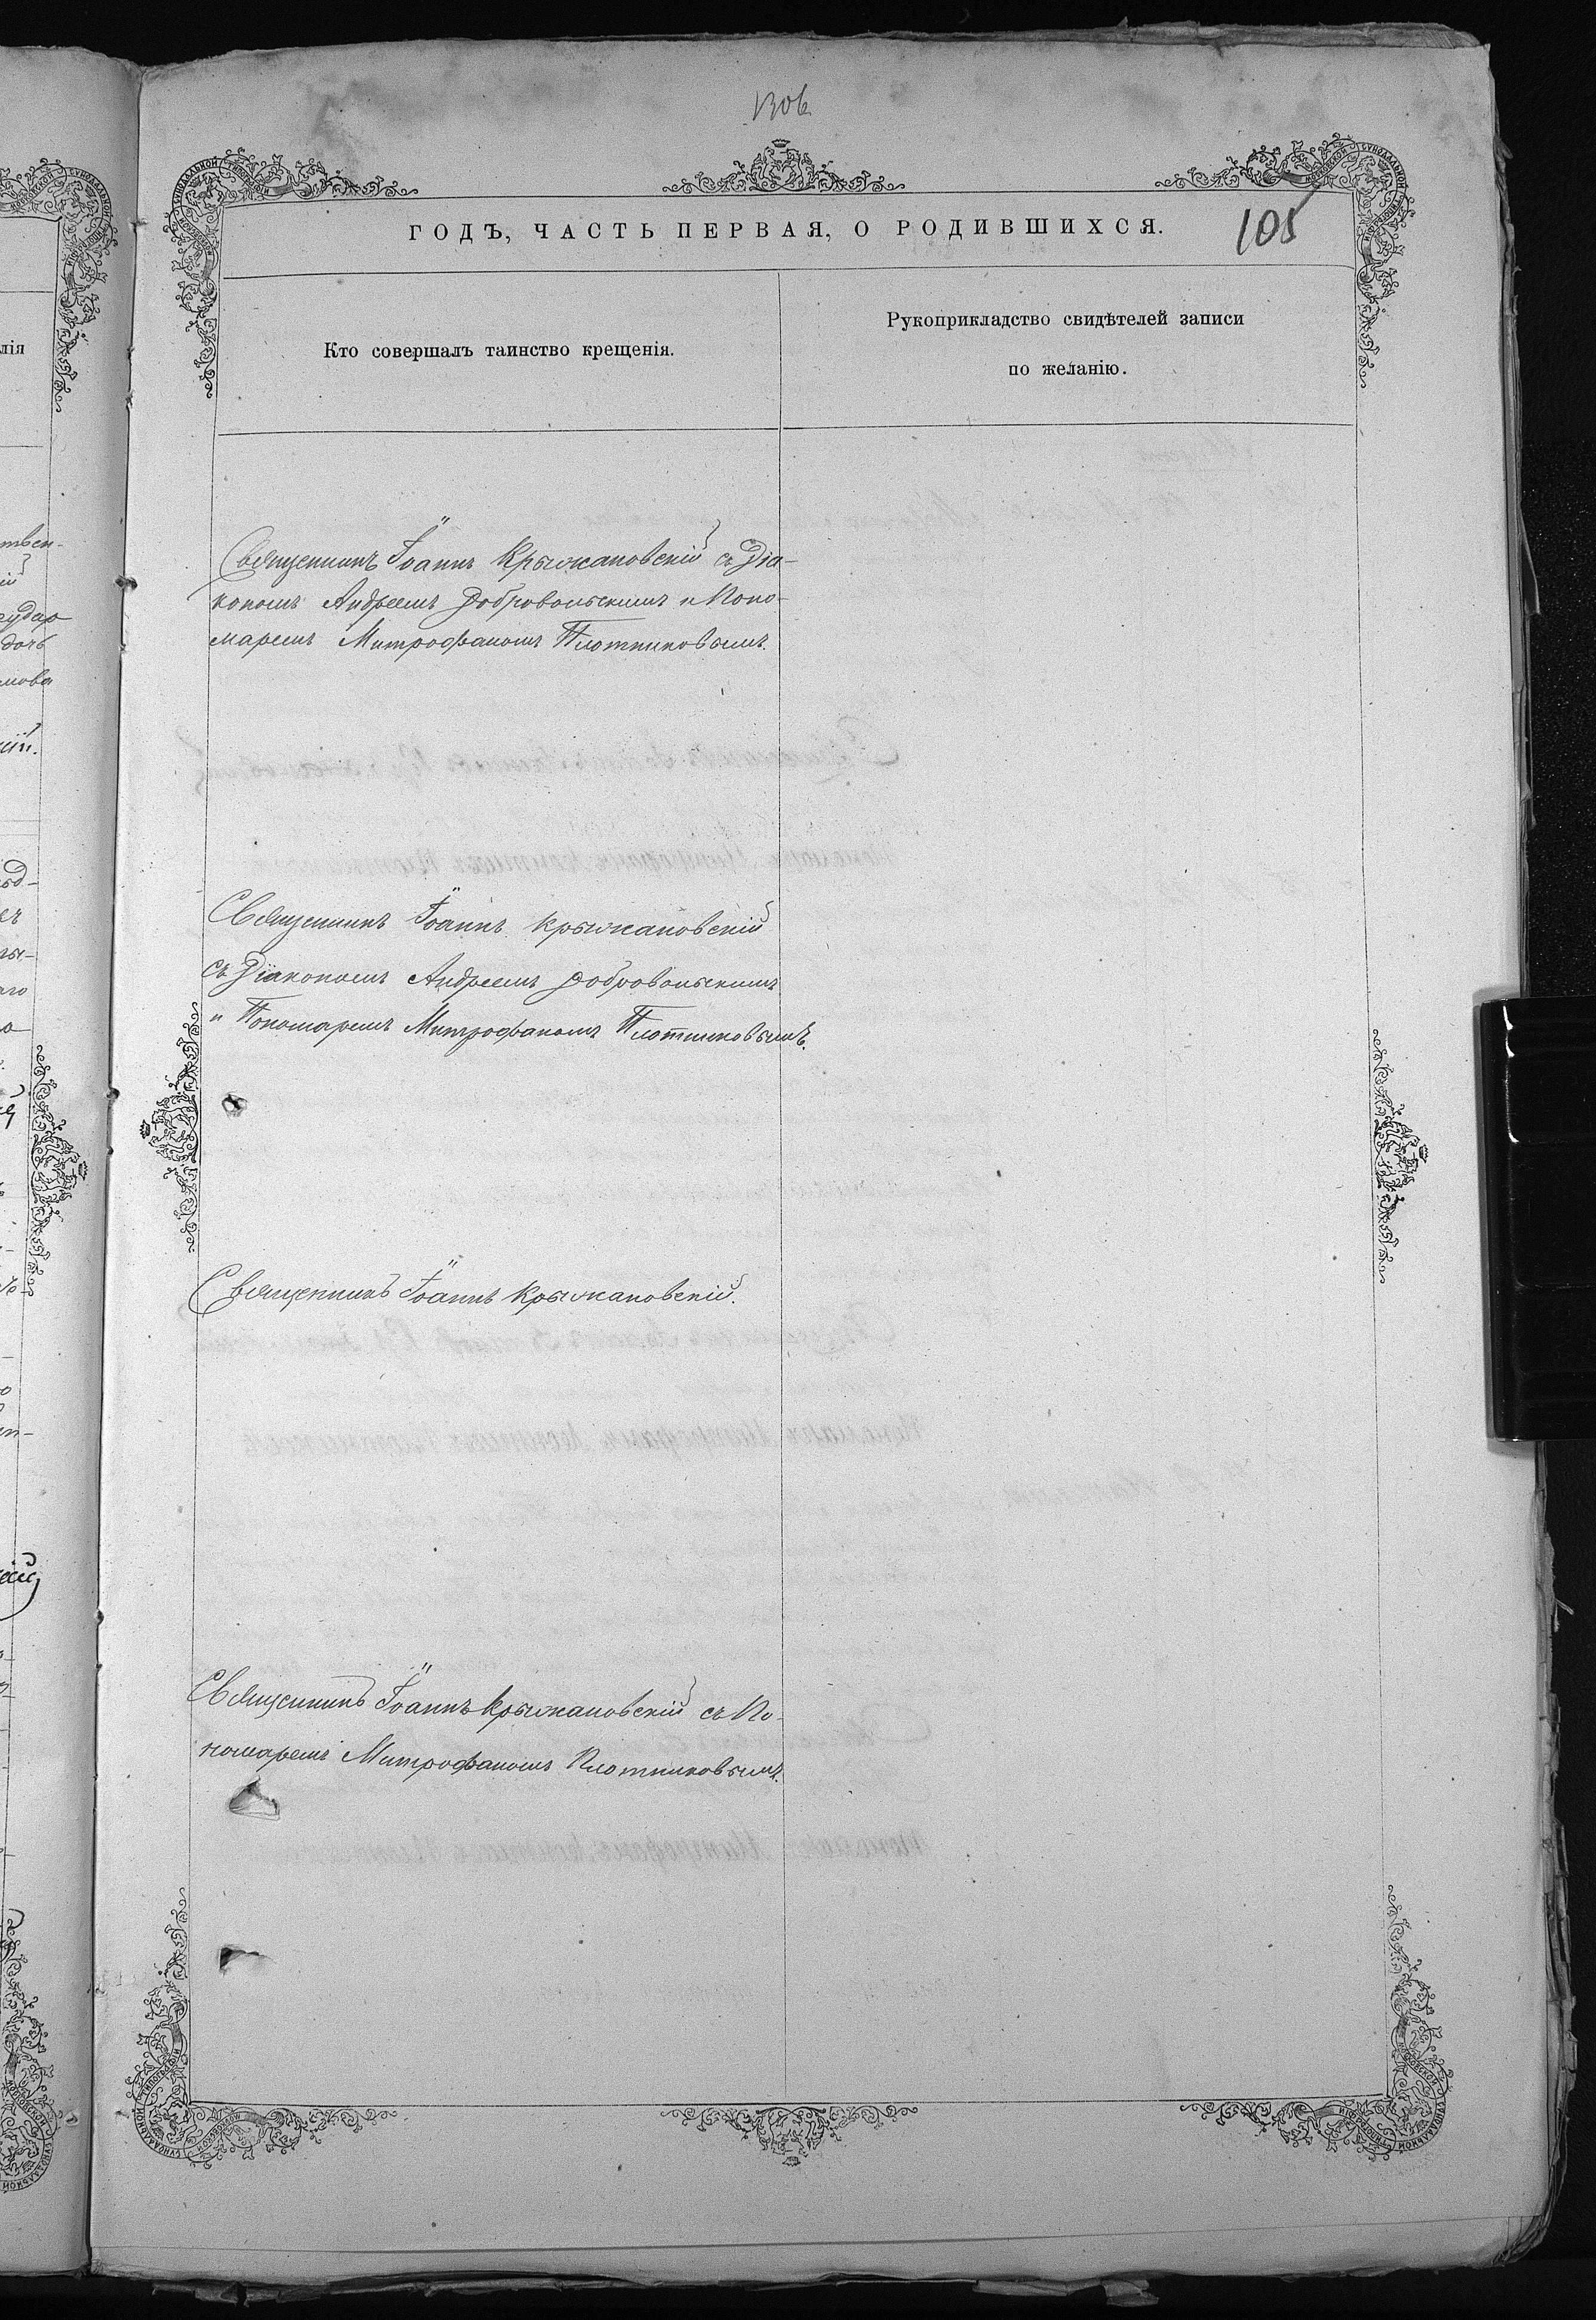 ГОДЪ, ЧАСТЬ ПЕРВАЯ, О РОДИВШИХСЯ.
105
Кто совершалъ таинство крещенія.
Рукоприкладство свидѣтелей записи
по желанію.
Священникъ Іоаннъ Крыжановскій съ Діа-
кономъ Андреемъ Добровольскимъ и Поно-
маремъ Митрофаномъ Плотниковымъ.
Священникъ Іоаннъ Крыжановскій
съ Діакономъ Андреемъ Добровольскимъ
и Пономаремъ Митрофаномъ Плотниковымъ.
Священникъ Іоаннъ Крыжановскій.
Священникъ Іоаннъ Крыжановскій съ По-
номаремъ Митрофаномъ Плотниковымъ.